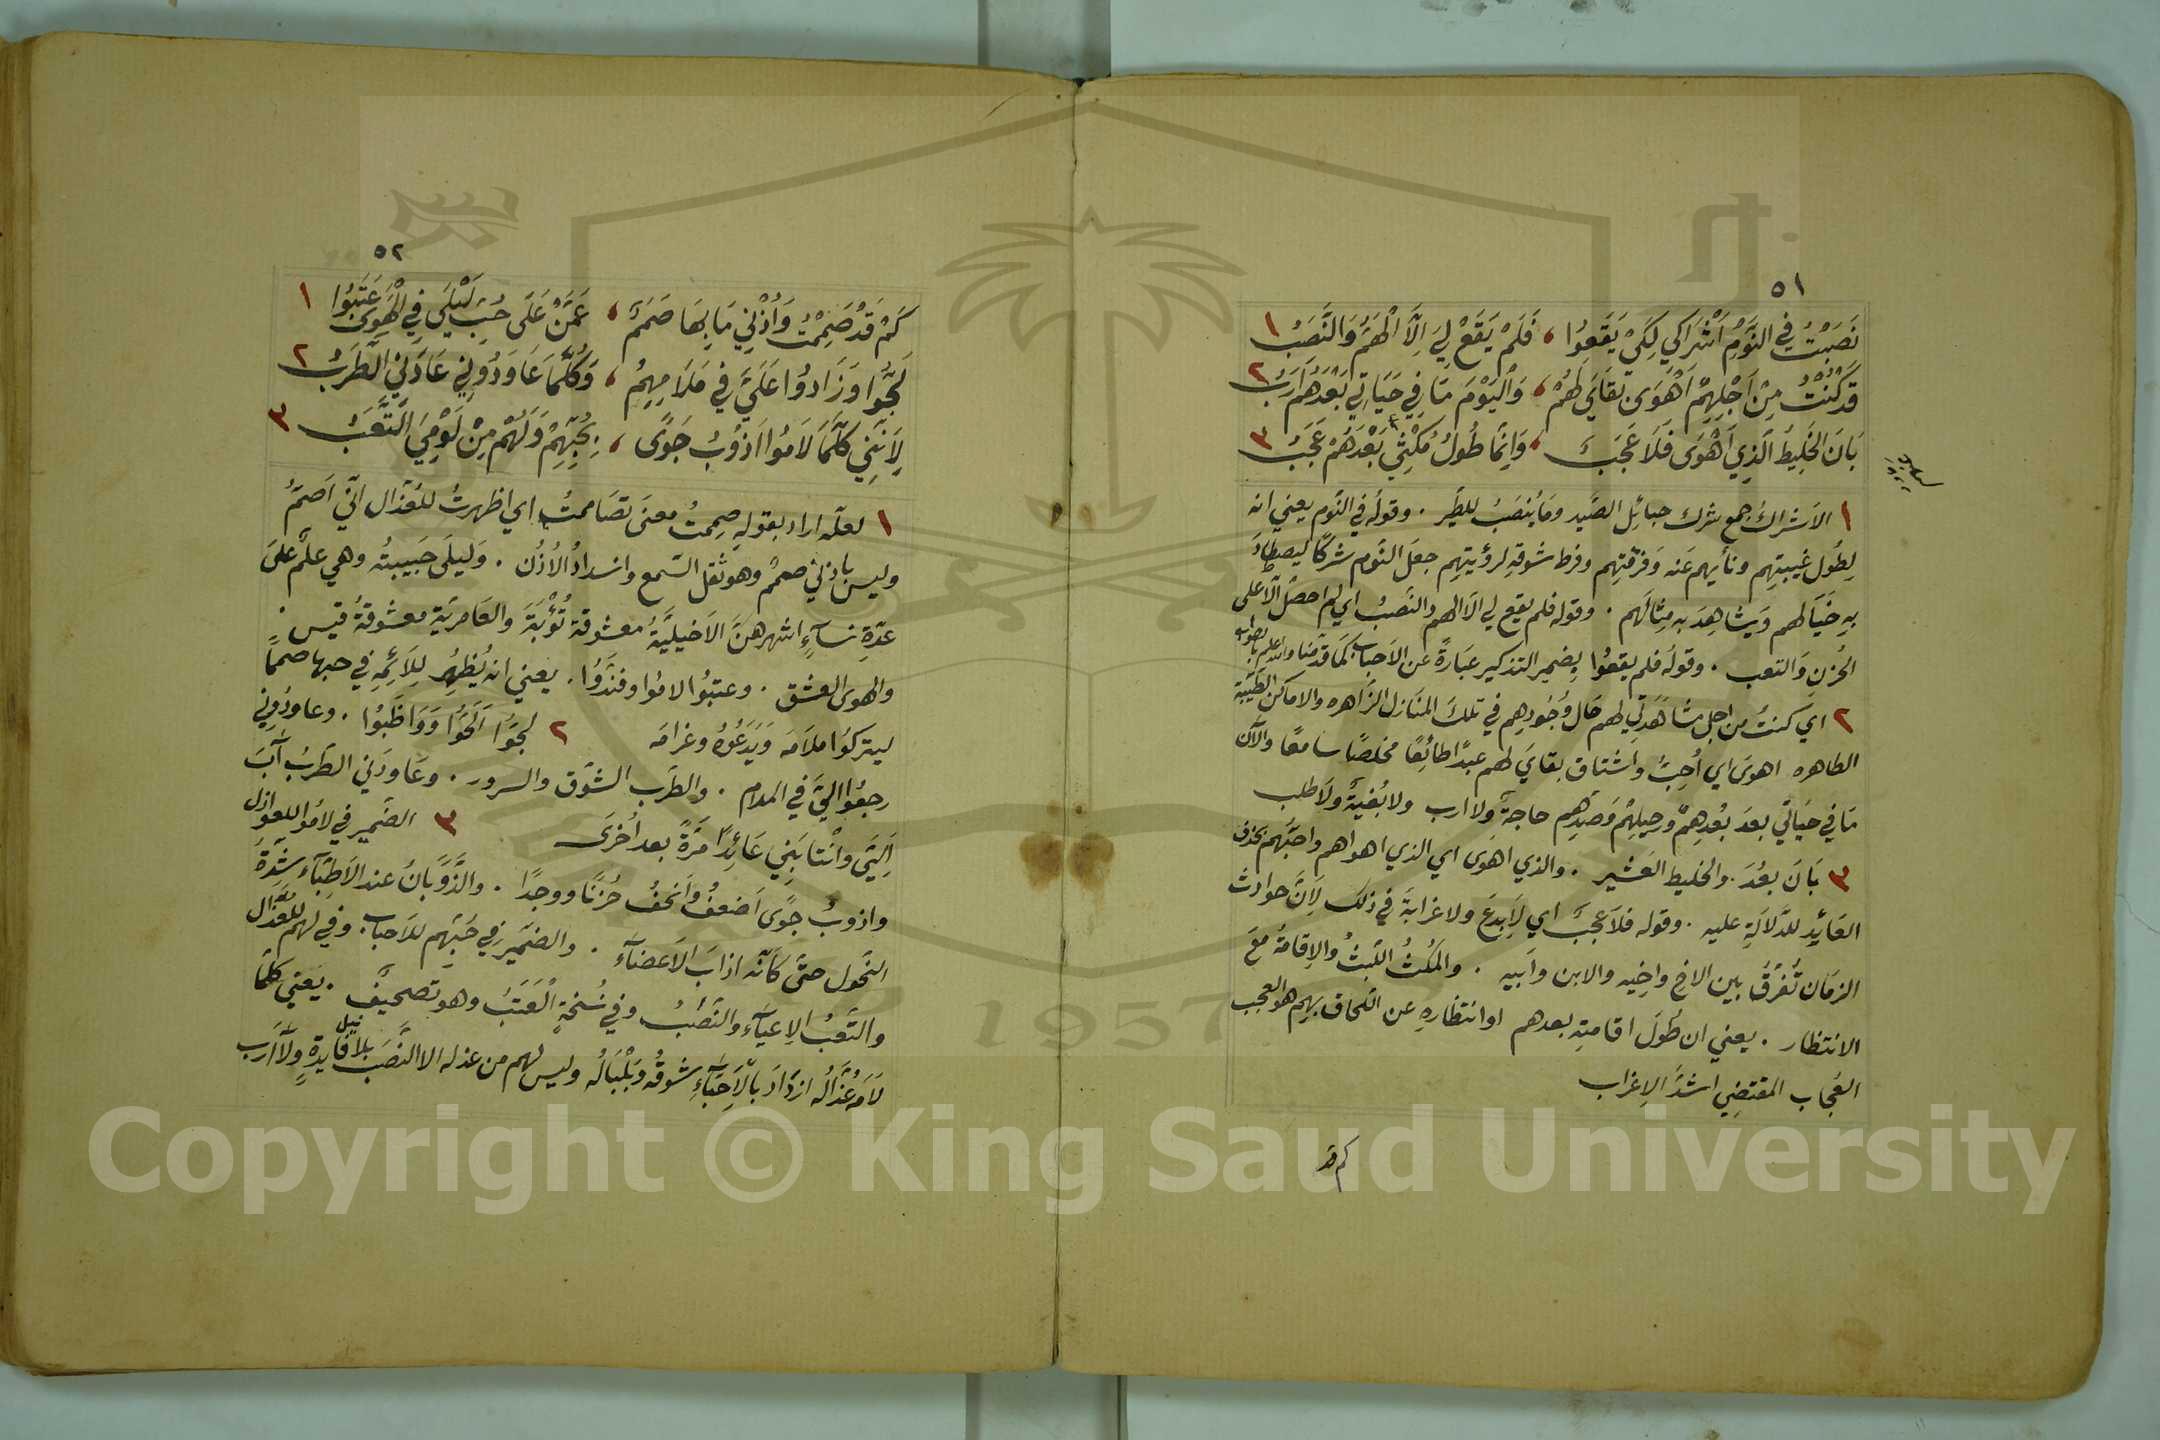 ٥١
نَصَبْتُ فِي النَّوْمِ أَشْرَاكِي لِكَيْ يَقَعُوا ، فَلَمْ يَقَعْ لِيَ اِلَّا الْهَمُّ وَالنَّصَبُ ١
قَدْ كُنْتُ مِنْ اَجْلِهِمْ اَهْوَى بَقَايَ لَهُمْ ، وَالْيَوْمَ مَا فِي حَيَاتِي بَعْدَهُمْ اَرَبُ ٢
بَانَ الخَلِيطُ الَّذِي اَهْوَى فَلَا عَجَبٌ ، وَاِنَّمَا طُولُ مُكْثِي بَعْدَهُمْ عَجَبُ ٣
١ الاَشراكُ جمع شرك حبائل الصَّيد ومَا يُنصَبُ للطَّير . وقولُه في النَّوم يعني انه
لِطُول غيبتِهم ونأيهم عَنه وَفرقتِهم وفرط شوقه لرؤيتِهم جعَل النَّوم شركًا ليصطادَ
بهِ خيَالَهم ويَشاهِدَ به مِثالَهم . وقوله فلم يقع لي الا الهم والنَصبُ اي لم احصل الا على
الحُزنِ وَالتعب . وقولُه فلم يقعُوا بضمير التذكير عبَارةً عن الاَحباب كمَا قدّمنا والله اعلم بالصواب
٢ اي كنتُ من اجل مشاهَدتي لهم حَال وُجُودِهم في تلكَ المنَازل الزَّاهره والاماكن الطيّبة
الطاهره اهوَى اي اُحِبُّ واَشتاق بقايَ لهم عبدًا طائِعًا مخلصًا سامعًا والآن
مَا في حيَاتي بعدَ بُعدِهم ورحِيلِهمْ وَصَدّهِم حاجة ولا ارب ولا بُغيةٌ ولَا طلب
٣ بَانَ بعُدَ . والخليط العَشير . والذي اهوَى اي الذي اهواهم واحبّهم بحذف
العَائِد للدَّلالَةِ عليه . وقوله فلَا عجبٌ اي لَا بِدعَ ولا غرابةَ في ذلك لِاَنَّ حوادث
الزمَان تُفرّقُ بين الاخ واخِيه والابن وابيه . والمكثُ اللَبثُ والاِقامةُ معَ
الانتظار . يعني ان طُولَ اقامتِه بعدهم او انتظارِه عن اللحاق بهِم هو العجب
العُجاب المقتضِي اشدَّ الاِغراب
كم قد
٥٢
كَمْ قَدْ صَمِمْتُ وَاُذْنِي مَا بِهَا صَمَمٌ ، عَمَّنْ عَلَى حُبِّ لَيْلَى فِي الْهَوَى عَتَبُوا ١
لَجُّوا وَزَادُوا عَلَيَّ فِي مَلَامِهِمُ ، وَكُلَّمَا عَاوَدُونِي عَادَنِي الطَّرَبُ ٢
لِاَنَّنِي كُلَّمَا لَامُوا اَذُوْبُ جَوًى ، بِحُبِّهِمْ وَلَهُمْ مِنْ لَوْمِيَ التَّعَبُ ٣
١ لعلّه اراد بقولهِ صمِمتُ معنَى تصَاممتُ اي اظهرتُ للعُذّال انّي اَصَمُّ
وليس باذني صممٌ وهو ثقل السّمع وانسدادُ الاُذُن . وَليلَى حَبيبتُه وهي علَم علىَ
عدّةِ نسآءٍ اشهرهنَّ الاَخيليَّةُ معشوقة تُوْبَةَ والعَامريّة معشوقةُ قيس .
والهوى العشق . وعتبُوا لامُوا وفنّدُوا . يعني انه يُظهِر لِلَائِمِه في حبها صممًا
ليتركوَا ملَامَه وَيدَعُوهُ وغرامَه ٢ لجوَّا اَلَحّوُا وَوَاظَبُوا . وعاودُوني
رجعُوا اليَّ في الملام . والطَرب الشوَق والسرور . وعَاودَني الطرَبُ آبَ
اِليَّ وانْتابَنِي عَائِدًا مَرَّةً بعد اُخرَى ٣ الضمير في لامُوا للعواذل
واذوبُ جوًى اَضعفُ واَنحفُ حُزنًا ووجدًا . والذَّوَبانُ عند الاَطِبّآء شِدّةُ
النّحول حتىَّ كَأنّه اذابَ الاَعضآءَ . والضمير في حُبّهِم للاَحباب وفي لهم للعُذّال
والتَّعَبُ الاِعيآء والنصَبُ وفي نُسخةٍ الْعَتَبُ وهو تصحيفٌ . يَعني كلمَّا
لَامَه عُذَّالُه ازدَادَ بالْاَحبّآءِ شوقُه وَبَلْبَالُه وليس لهم من عذله الا النَّصَب بلا نيل فايدةٍ ولآ ارَب